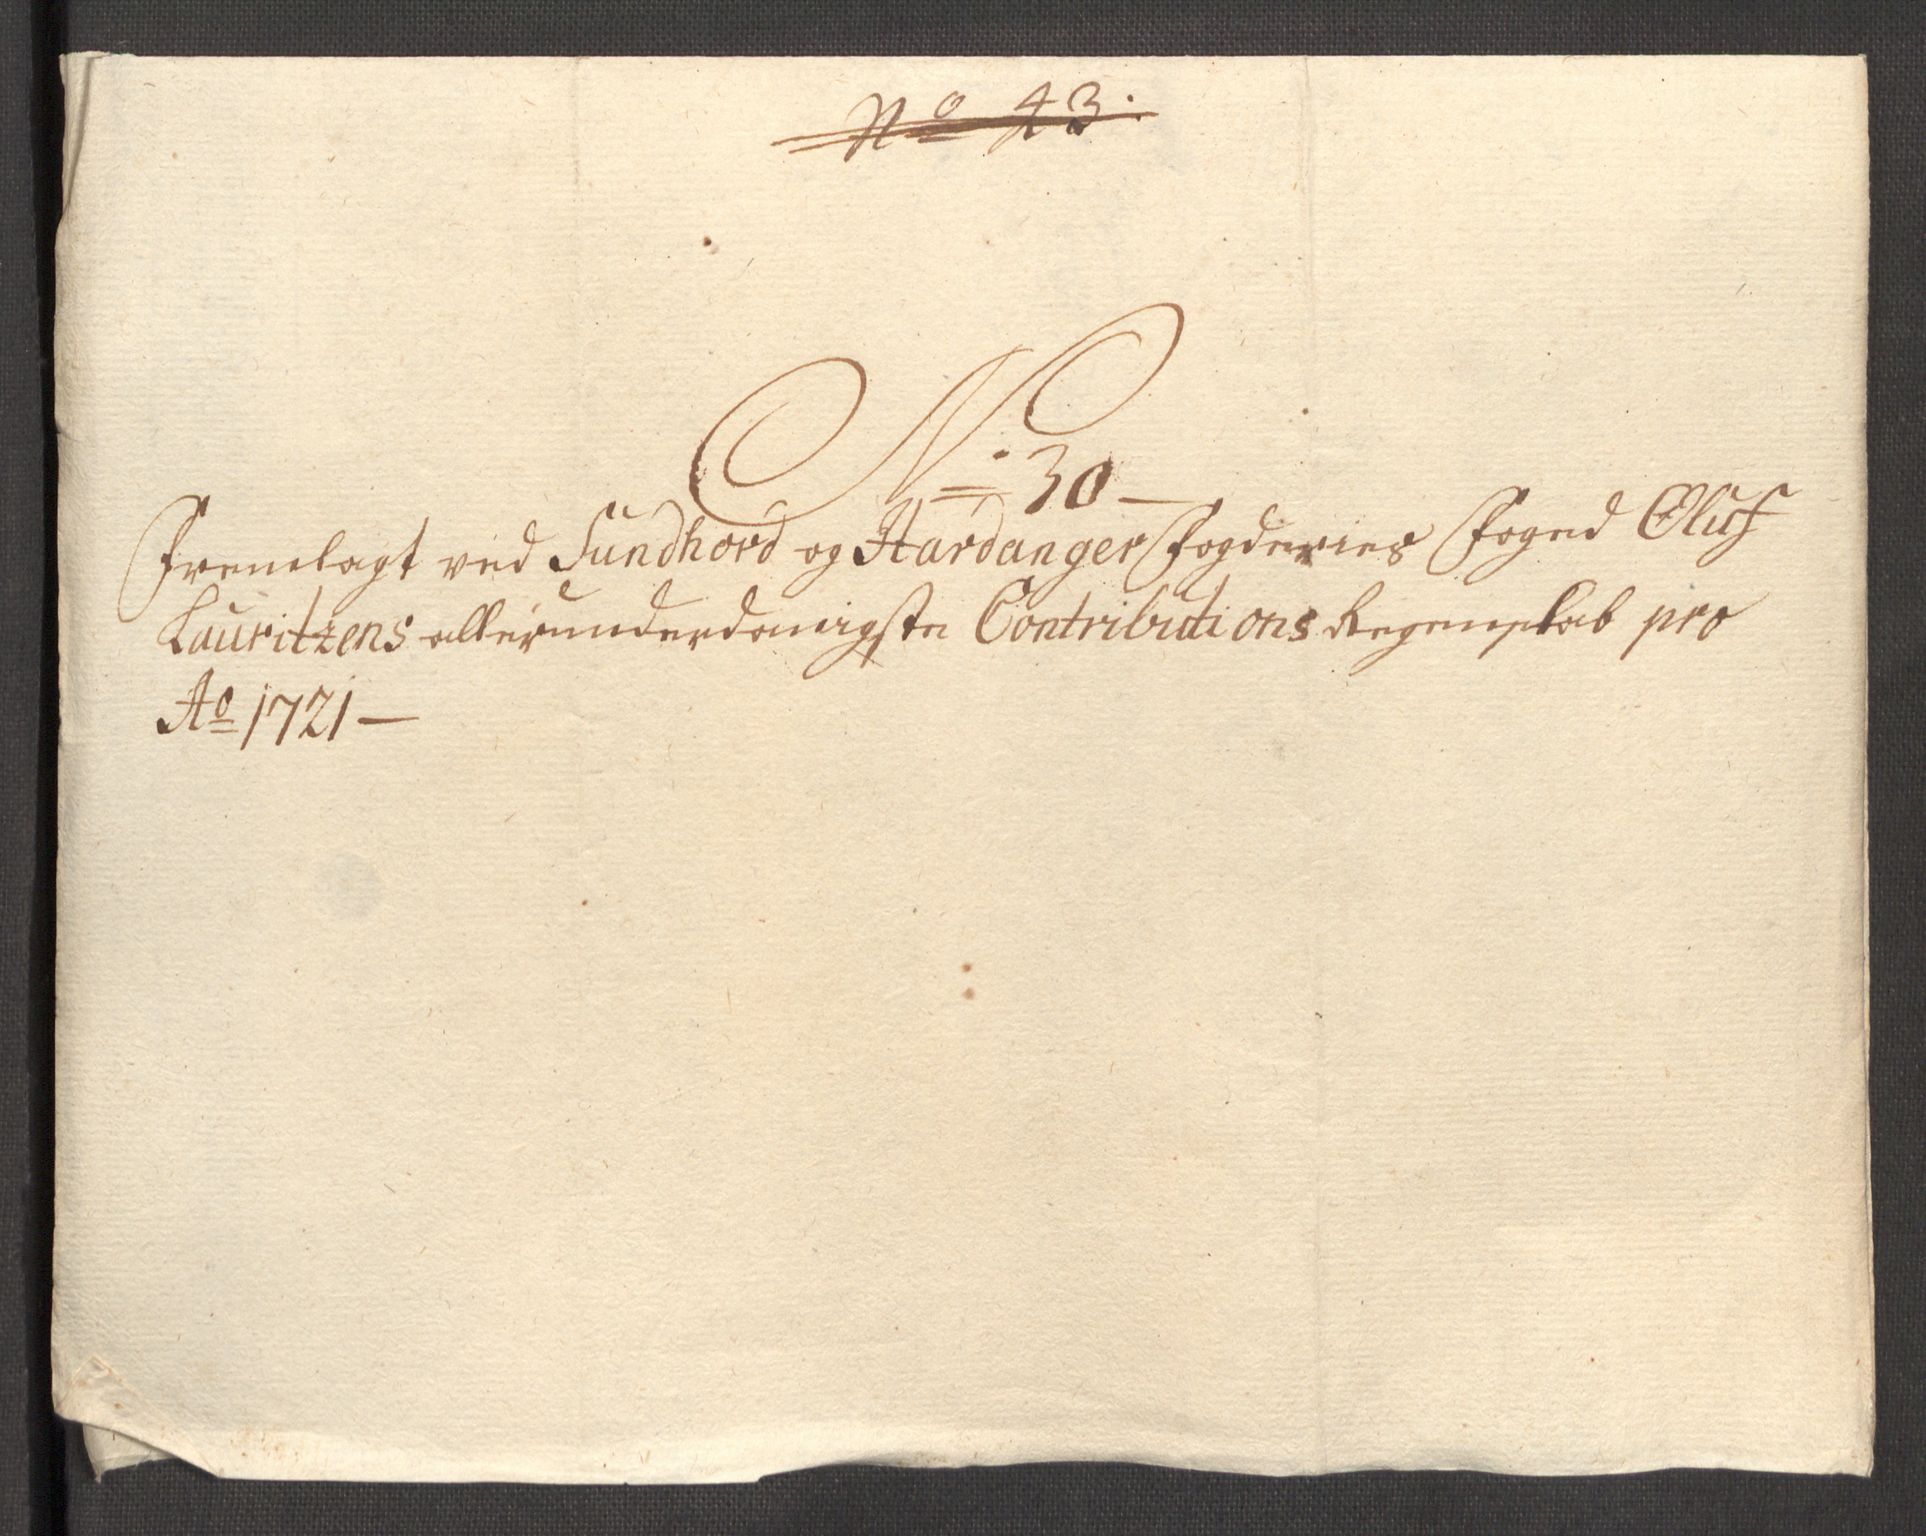 No 43.
No. 30 —
Fremlagt ved Sundhord og Hardanger Fogderies Foged Oluf
Lauritzens allerunderdanigste Contributions Regenskab pro
Ao 1721 —